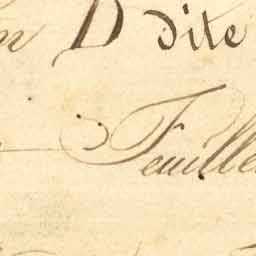 D dite
Feuille